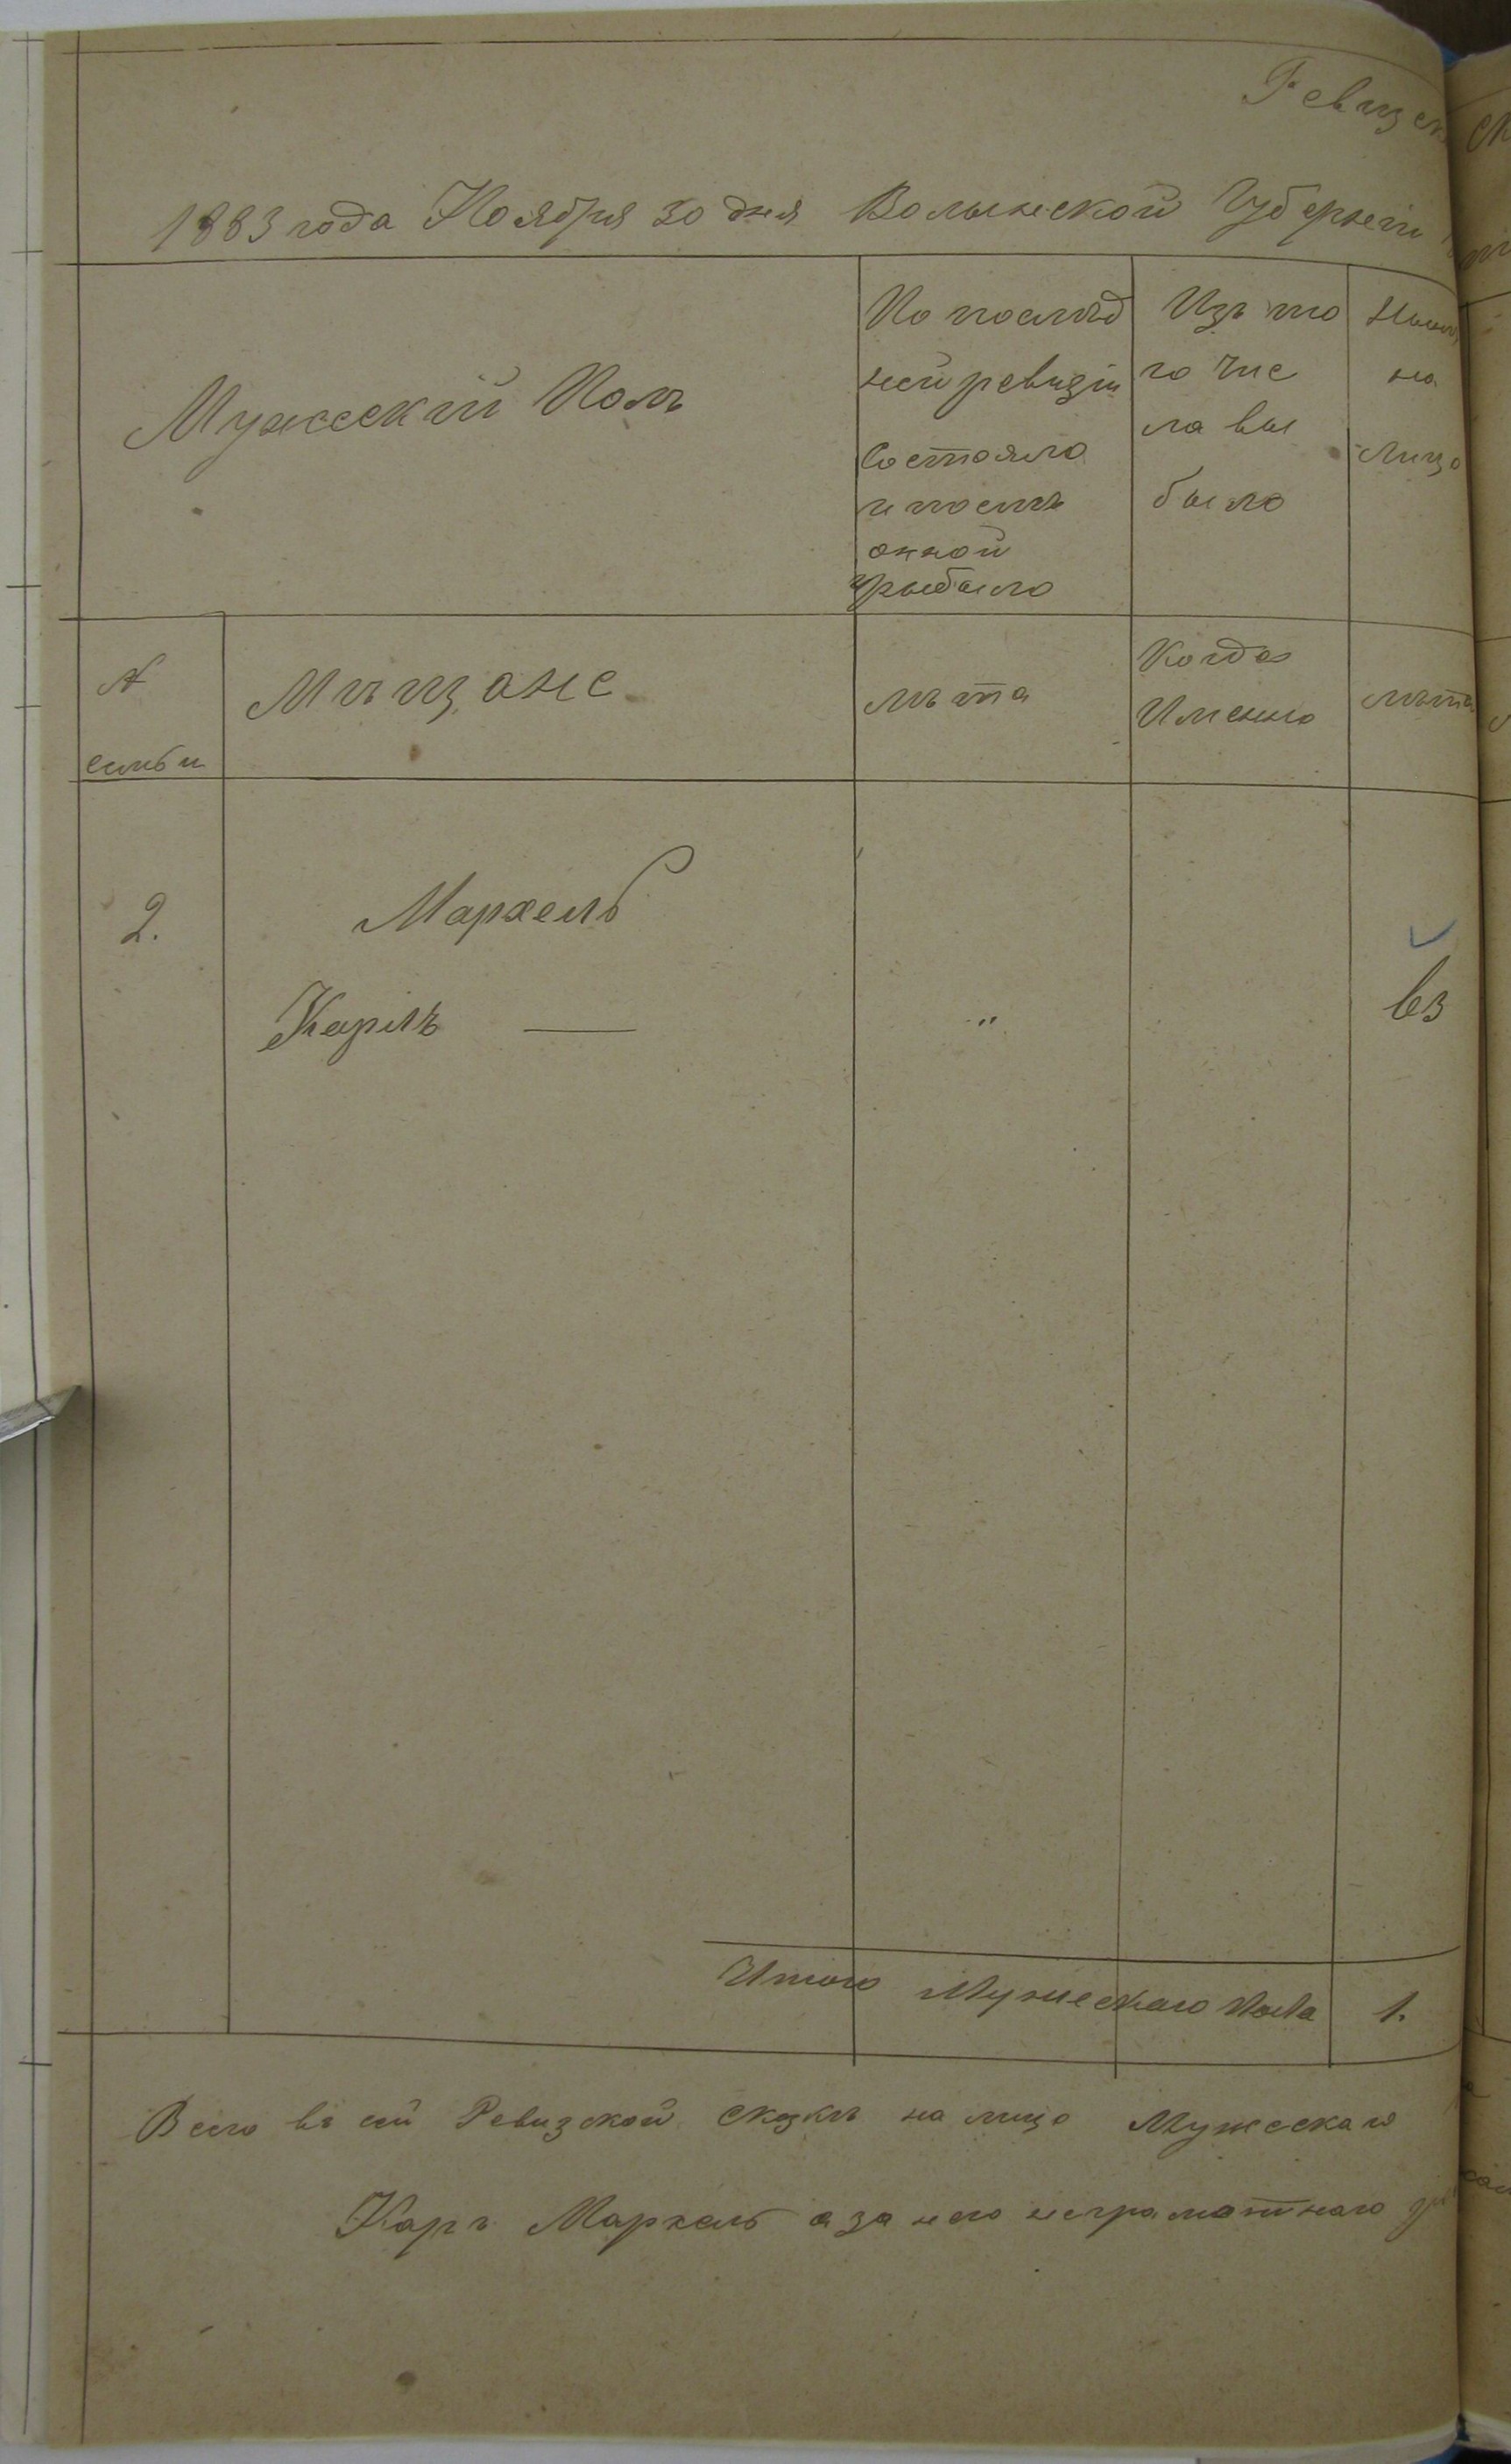 Ревизск
1883 года Ноября 30 дня Волынской Губерніи
Мужескій Полъ
По послѣд
ней ревизіи
состояло
и послѣ
онной
прыбыло
Изъ то
го чис
ла вы
было
Нынѣ
на
лицо
№
семьи
Мѣщане
лѣта
Когда
Именно
лѣта
2.
Мархель
Карлъ —
"
63
Итого Мужескаго Пола 1.
Всего въ сей Ревизской сказкѣ на лицо Мужескаго
Карлъ Мархель а за него неграмотнаго